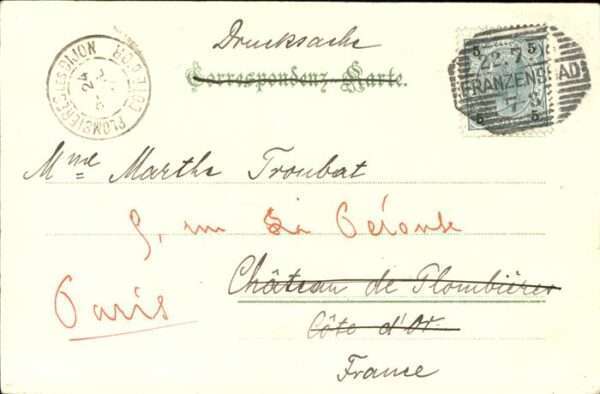 Drucksache
Correspondenz-Karte.
PLOMBIÈRES-LES-DIJON
CÔTE-D'OR
24
5
5
22.7
FRANZENSBAD
5
5
Mme Marthe Troubat
5, rue La Pérouse
Paris
Château de Plombières
Côte d'Or
France